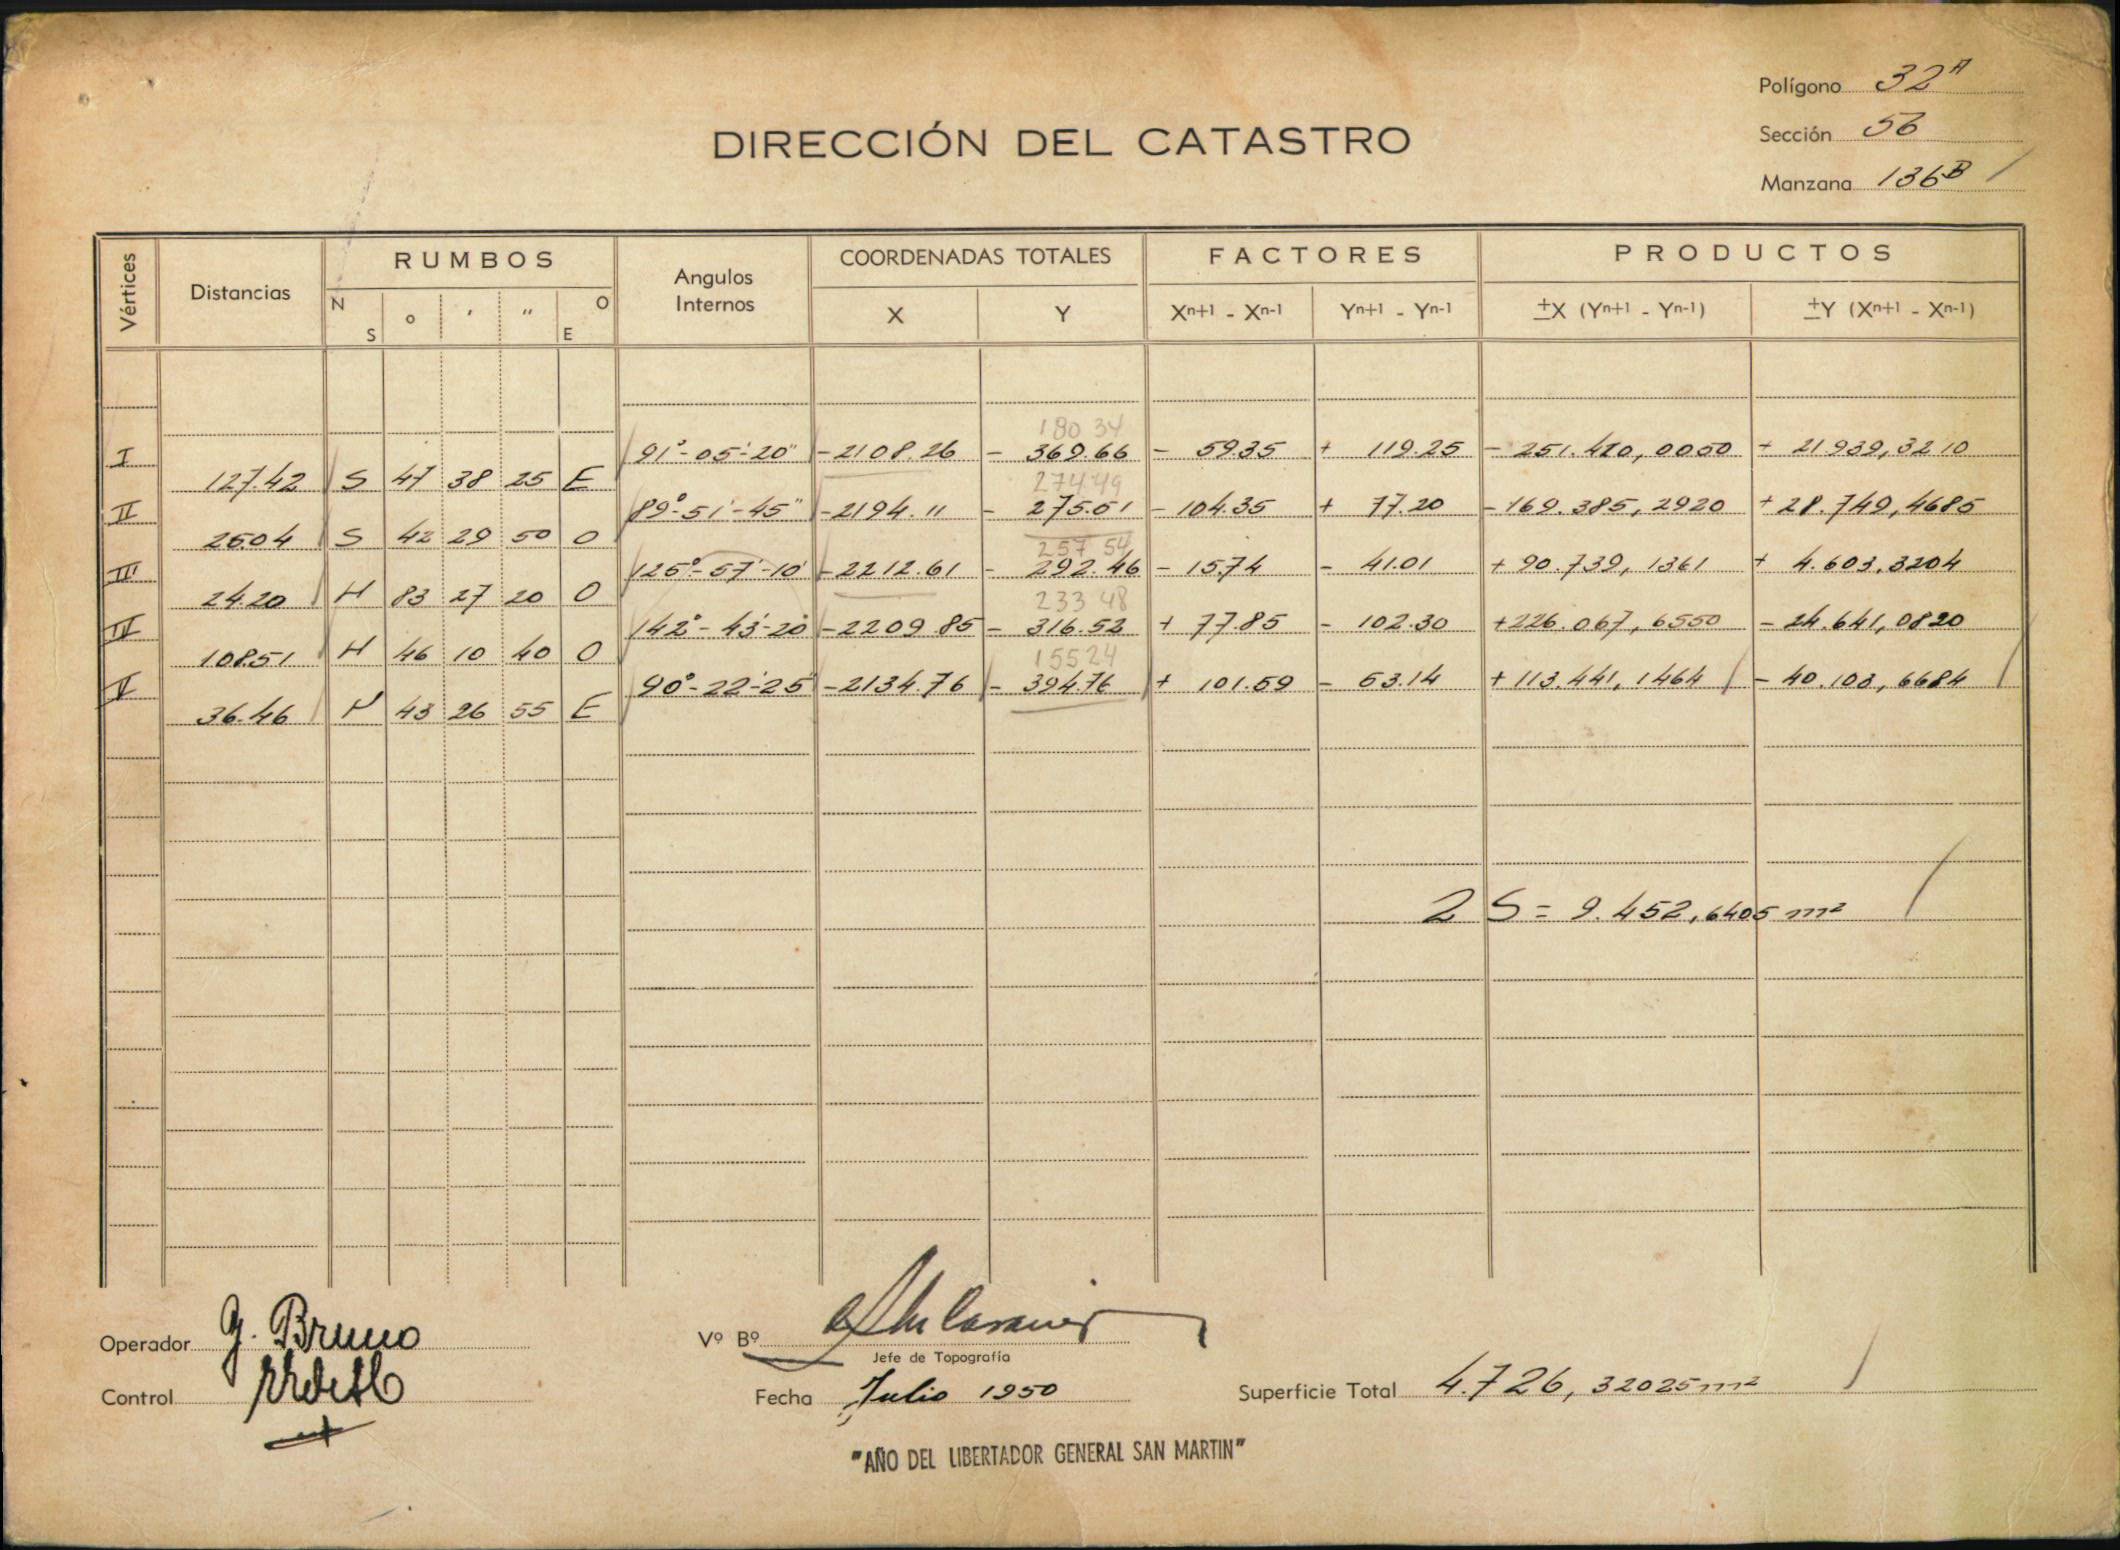 Polígono 32ᴬ
Sección 56
Manzana 136ᴮ
DIRECCIÓN DEL CATASTRO
Vértices Distancias RUMBOS Angulos Internos COORDENADAS TOTALES FACTORES PRODUCTOS
N S ° ' " O E X Y Xⁿ⁺¹ - Xⁿ⁻¹ Yⁿ⁺¹ - Yⁿ⁻¹ ±X (Yⁿ⁺¹ - Yⁿ⁻¹) ±Y (Xⁿ⁺¹ - Xⁿ⁻¹)
180 34
I 91°-05'-20" -2108.26 - 369.66 - 59.35 + 119.25 - 251.410,0050 + 21.939,3210
127.42 S 47 38 25 E
274.49
II 89°-51'-45" -2194.11 - 275.51 - 104.35 + 77.20 - 169.385,2920 + 28.749,4685
25.04 S 42 29 50 O
257 54
III 125°-57'-10" -2212.61 - 292.46 - 15.74 - 41.01 + 90.739,1361 + 4.603,3204
24.20 N 83 27 20 O
233 48
IV 142°-43'-20" -2209.85 - 316.52 + 77.85 - 102.30 + 226.067,6550 - 24.641,0820
108.51 N 46 10 40 O
155 24
V 90°-22'-25" -2134.76 - 394.76 + 101.59 - 53.14 + 113.441,1464 - 40.103,6684
36.46 N 43 26 55 E
2 S = 9.452,6405 m²
Operador G. Bruno
Vº Bº
Jefe de Topografía
Control
Fecha Julio 1950
Superficie Total 4.726,32025 m²
"AÑO DEL LIBERTADOR GENERAL SAN MARTIN"